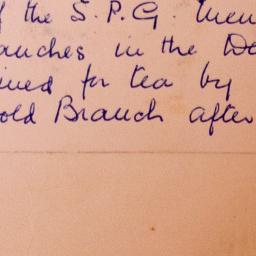 f the S. P. G. mem
anches in the De
ined for tea by
old Branch after